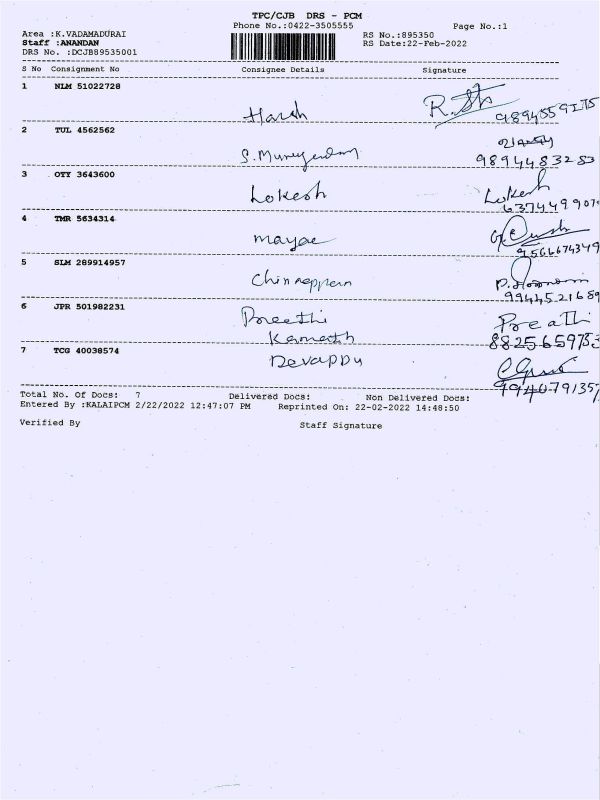 TPC/CJB DRS - PCM
Phone No.:0422-3505555 Page No.:1
Area :K.VADAMADURAI RS No.:895350
Staff :ANANDAN RS Date:22-Feb-2022
DRS No. :DCJB89535001
S No Consignment No Consignee Details Signature
1 NLM 51022728
Harsh R.
9894559275
2 TUL 4562562
S.Murugendran
9894483283
3 OTY 3643600
Lokesh Lokesh
637449907
4 TMR 5634314
mayae
9566674349
5 SLM 289914957
Chinnappan
994452168
6 JPR 501982231
Preethi Preathi
Kamath 8825659753
7 TCG 40038574
Devappu
994079135
Total No. Of Docs: 7 Delivered Docs: Non Delivered Docs:
Entered By :KALAIPCM 2/22/2022 12:47:07 PM Reprinted On: 22-02-2022 14:48:50
Verified By Staff Signature